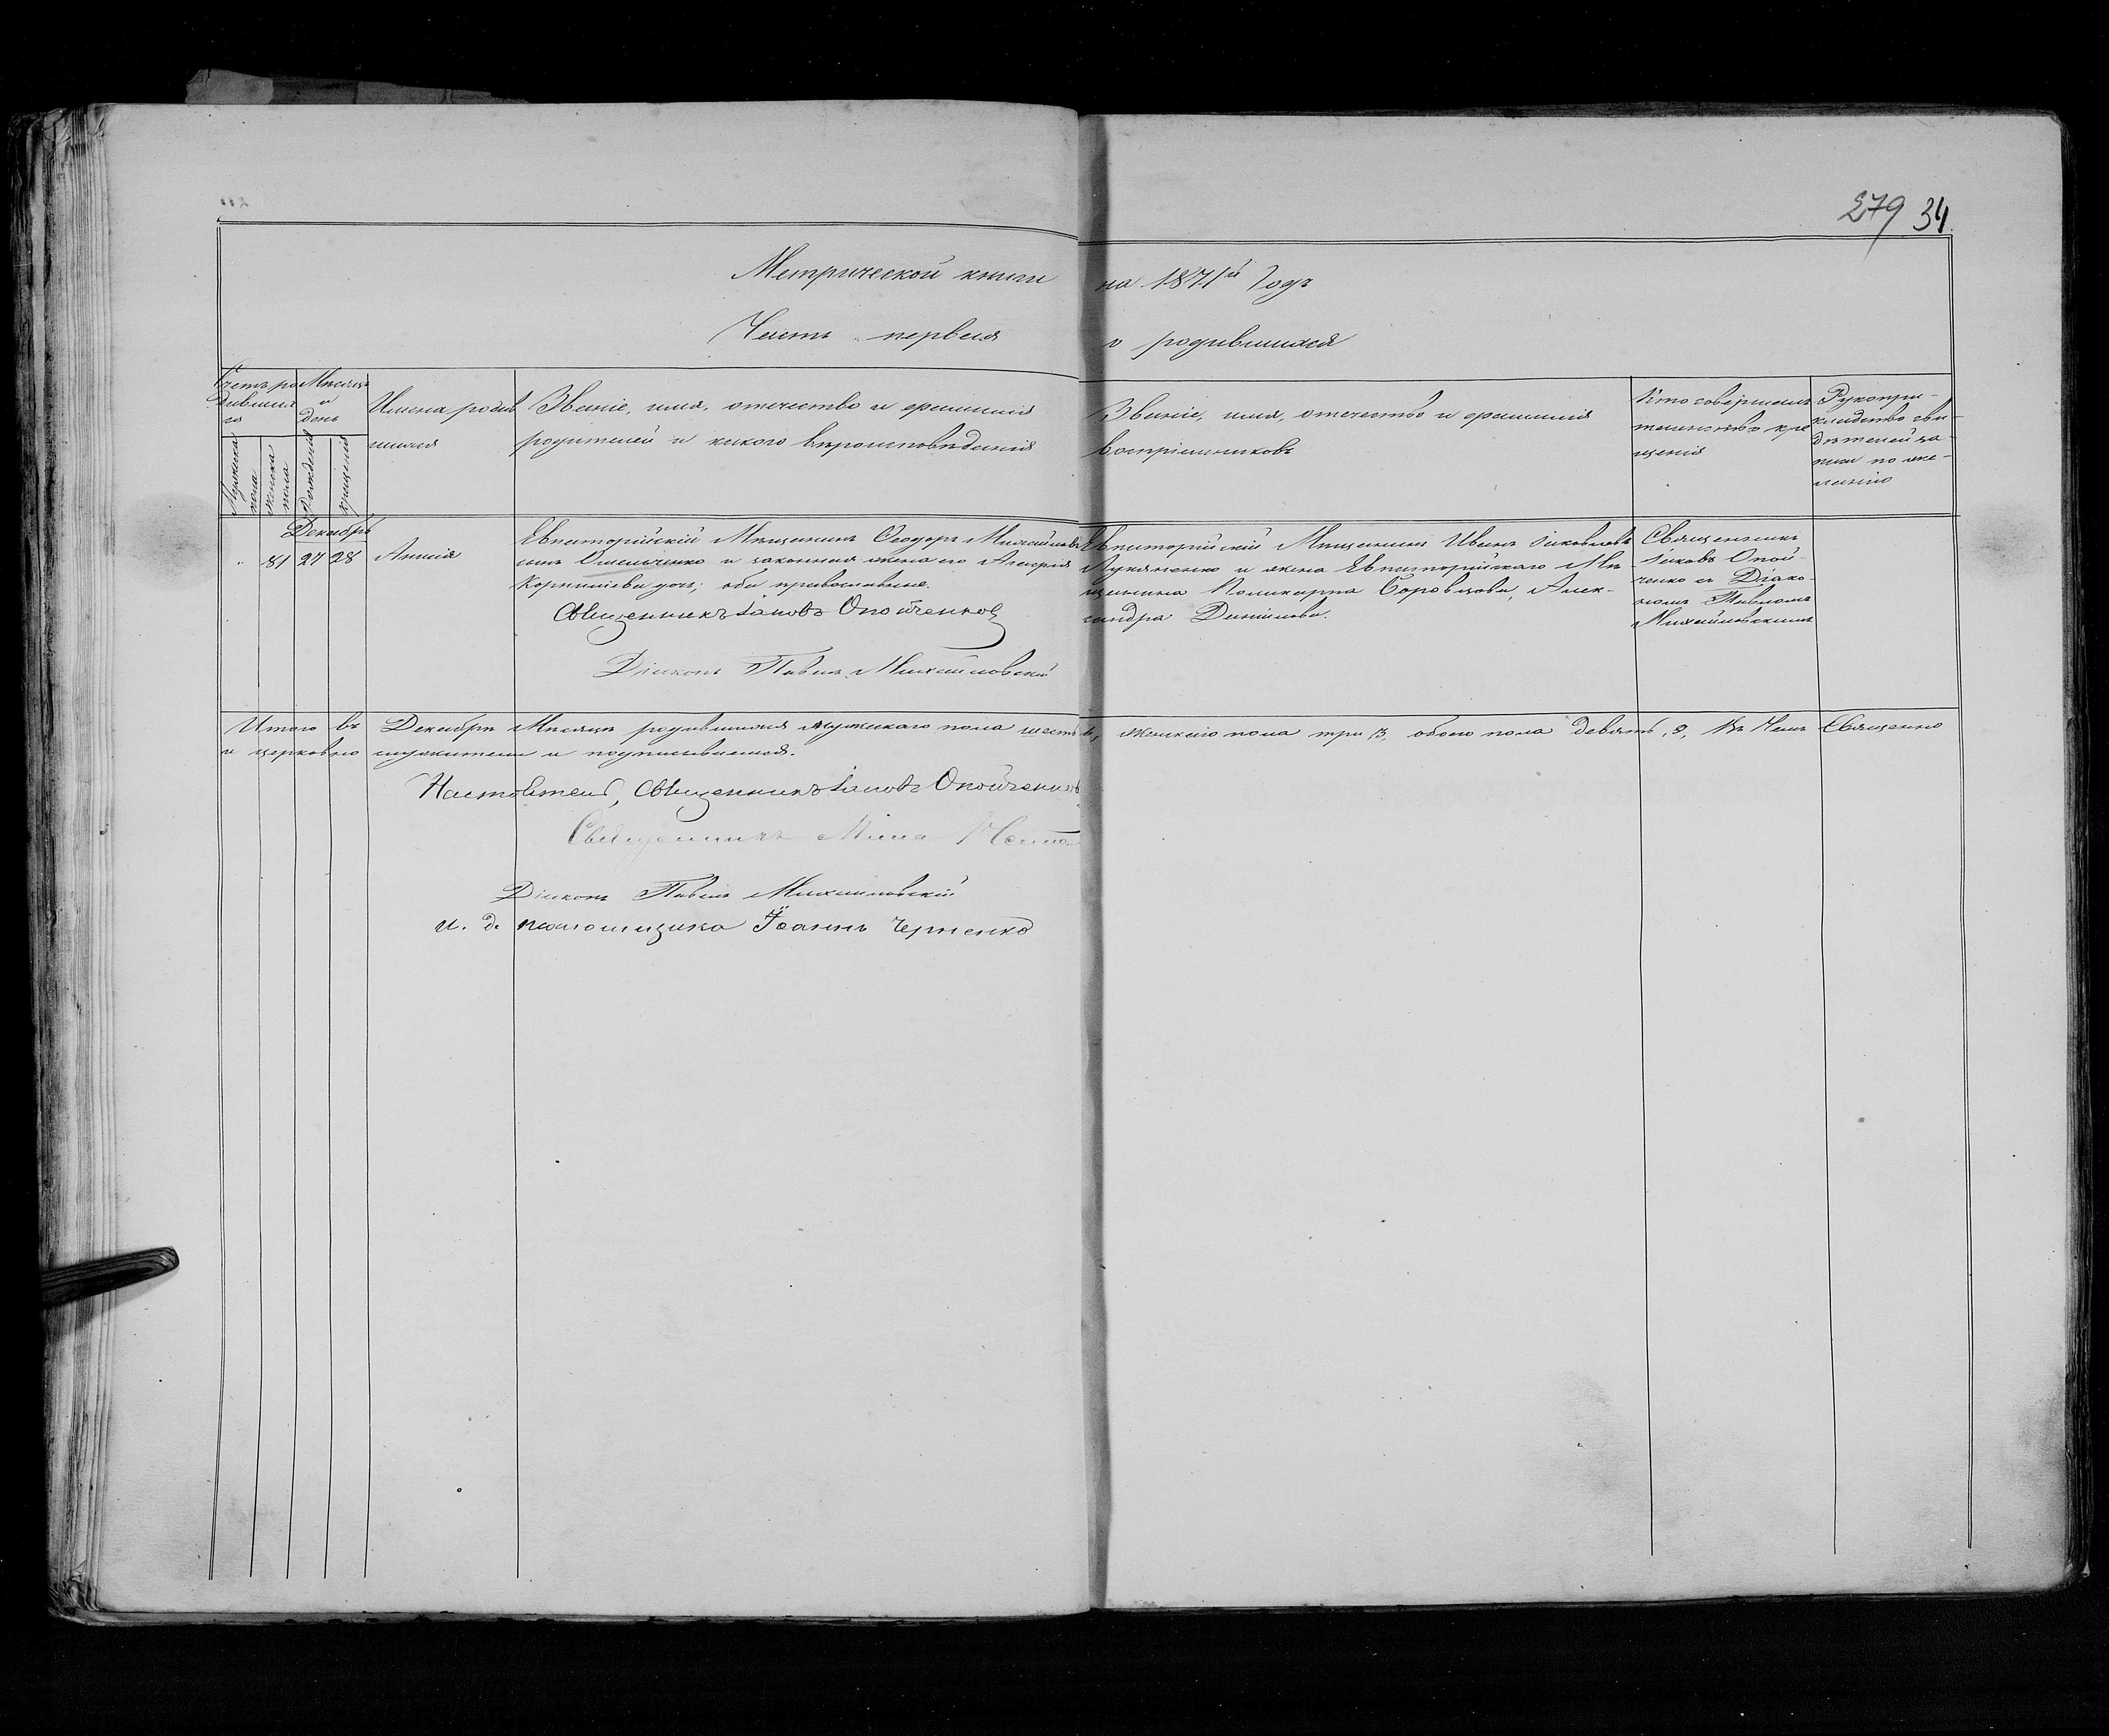 279 34
Метрической книги на 1871й Годъ
Часть первая о родившихся
Счетъ ро
дивших
ся
Мужеска
пола
женска
пола
Мѣсяцъ
и
день
Рожденія
Крещенія
Имена родив
шихся
Званіе, имя, отечество и фамилія
родителей и какого вѣроисповѣданія
Званіе, имя, отечество и фамилія
воспріемниковъ
Кто совершалъ
таинство кре
щенія
Рукопри-
кладство сви-
дѣтелей за-
писи по же-
ланію
Декабрь
81 27 28 Анисія
Евпаторійскій Мѣщанинъ Ѳеодоръ Михайловъ
сынъ Омельченко и законная жена его
Корнилiева дочь; оба православные.
Священникъ Іаковъ Опойченковъ
Діаконъ Павелъ Михайловскій
Евпаторійскій Мѣщанинъ Иванъ Іаковлевъ
Лукяненко и жена Евпаторійскаго Мѣ
щанина Поликарпа Боровцова, Алек-
сандра Данилова.
Священникъ
Іаковъ Опой-
ченко съ Діако-
номъ Павломъ
Михайловскимъ
Итого въ Декабрѣ Мѣсяцѣ родившихся мужскаго пола шесть 6, женскаго пола три 3, обоего пола девять, 9, Въ Чемъ Священно
и церковно служители и подписываемся.
Настоятель, Священникъ Іаковъ Опойченковъ
Священникъ Мина
Діаконъ Павелъ Михайловскій
и. д. псаломщика Іоаннъ Черненко